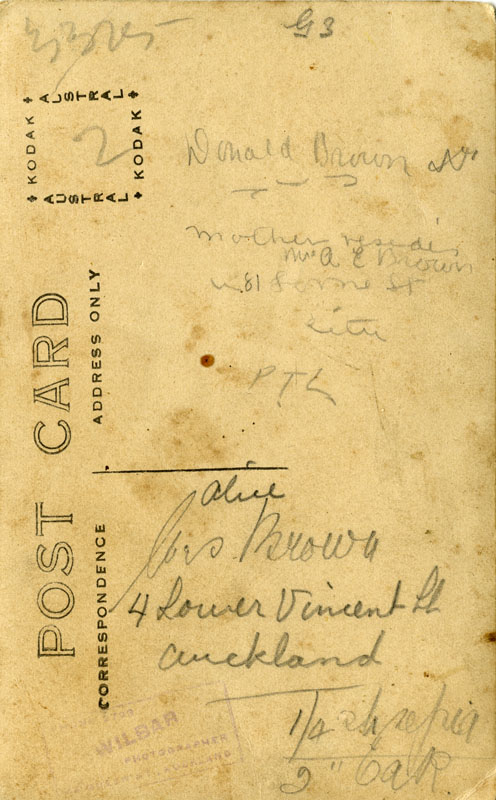 G3
KODAK AUSTRAL
KODAK AUSTRAL
2
Donald Brown
mother resides
Mrs A E Brown
81 Lorne St
city
PTL
POST CARD
ADDRESS ONLY
CORRESPONDENCE
alice
Mrs. Brown
4 Lower Vincent St
auckland
1/2
2"
WILBAR
PHOTOGRAPHER